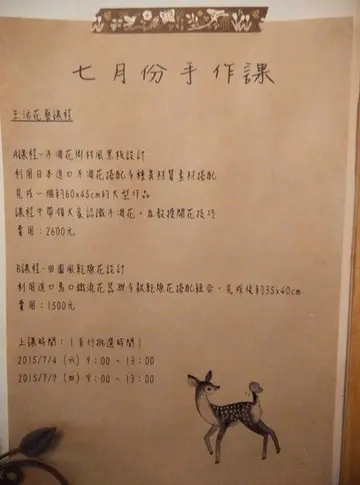 七月份手作課
生活花藝課程
A課程-不凋花鄉村風黑板設計
利用日本進口不凋花搭配多種異材質素材搭配
完成一個約60x45cm的大型作品
課程中帶領大家認識不凋花，並教授開花技巧
費用：2600元
B課程-田園風乾燥花設計
利用進口馬口鐵澆花器與多款乾燥花搭配組合，完成後約35x40cm
費用：1500元
上課時間：（自行挑選時間）
2015/7/4 (六) 9：00 - 13：00
2015/7/9 (四) 9：00 - 13：00